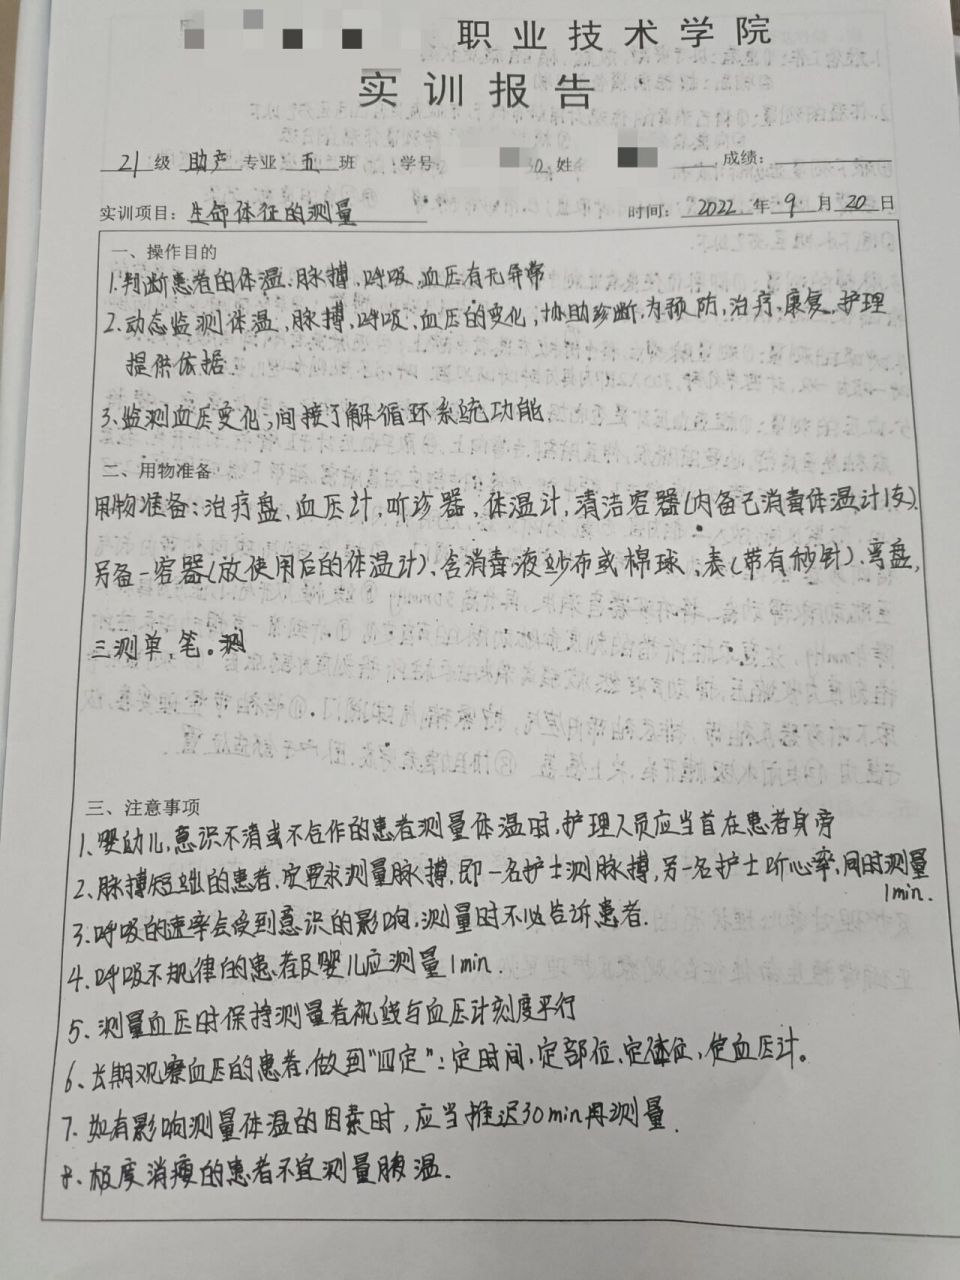 职业技术学院
实训报告
21级 助产 专业 五 班 学号 30 姓 成绩：
实训项目：生命体征的测量 时间：2022年9月20日
一、操作目的
1.判断患者的体温、脉搏、呼吸、血压有无异常
2.动态监测体温、脉搏、呼吸、血压的变化，协助诊断，为预防，治疗、康复、护理
提供依据.
3.监测血压变化，间接了解循环系统功能
二、用物准备
用物准备：治疗盘、血压计，听诊器，体温计，清洁容器(内备已消毒体温计1支).
另备一容器(放使用后的体温计)、含消毒液纱布或棉球、表(带有秒针)、弯盘，
三测单，笔。测
三、注意事项
1、婴幼儿，意识不清或不合作的患者测量体温时，护理人员应当首在患者身旁
2、脉搏短绌的患者，应要求测量脉搏，即一名护士测脉搏，另一名护士听心率，同时测量
1min.
3、呼吸的速率会受到意识的影响，测量时不必告诉患者.
4、呼吸不规律的患者及婴儿应测量1min.
5、测量血压时保持测量者视线与血压计刻度平行
6、长期观察血压的患者，做到"四定"：定时间，定部位，定体位，使血压计。
7.如有影响测量体温的因素时，应当推迟30min再测量.
8、极度消瘦的患者不宜测量腋温.